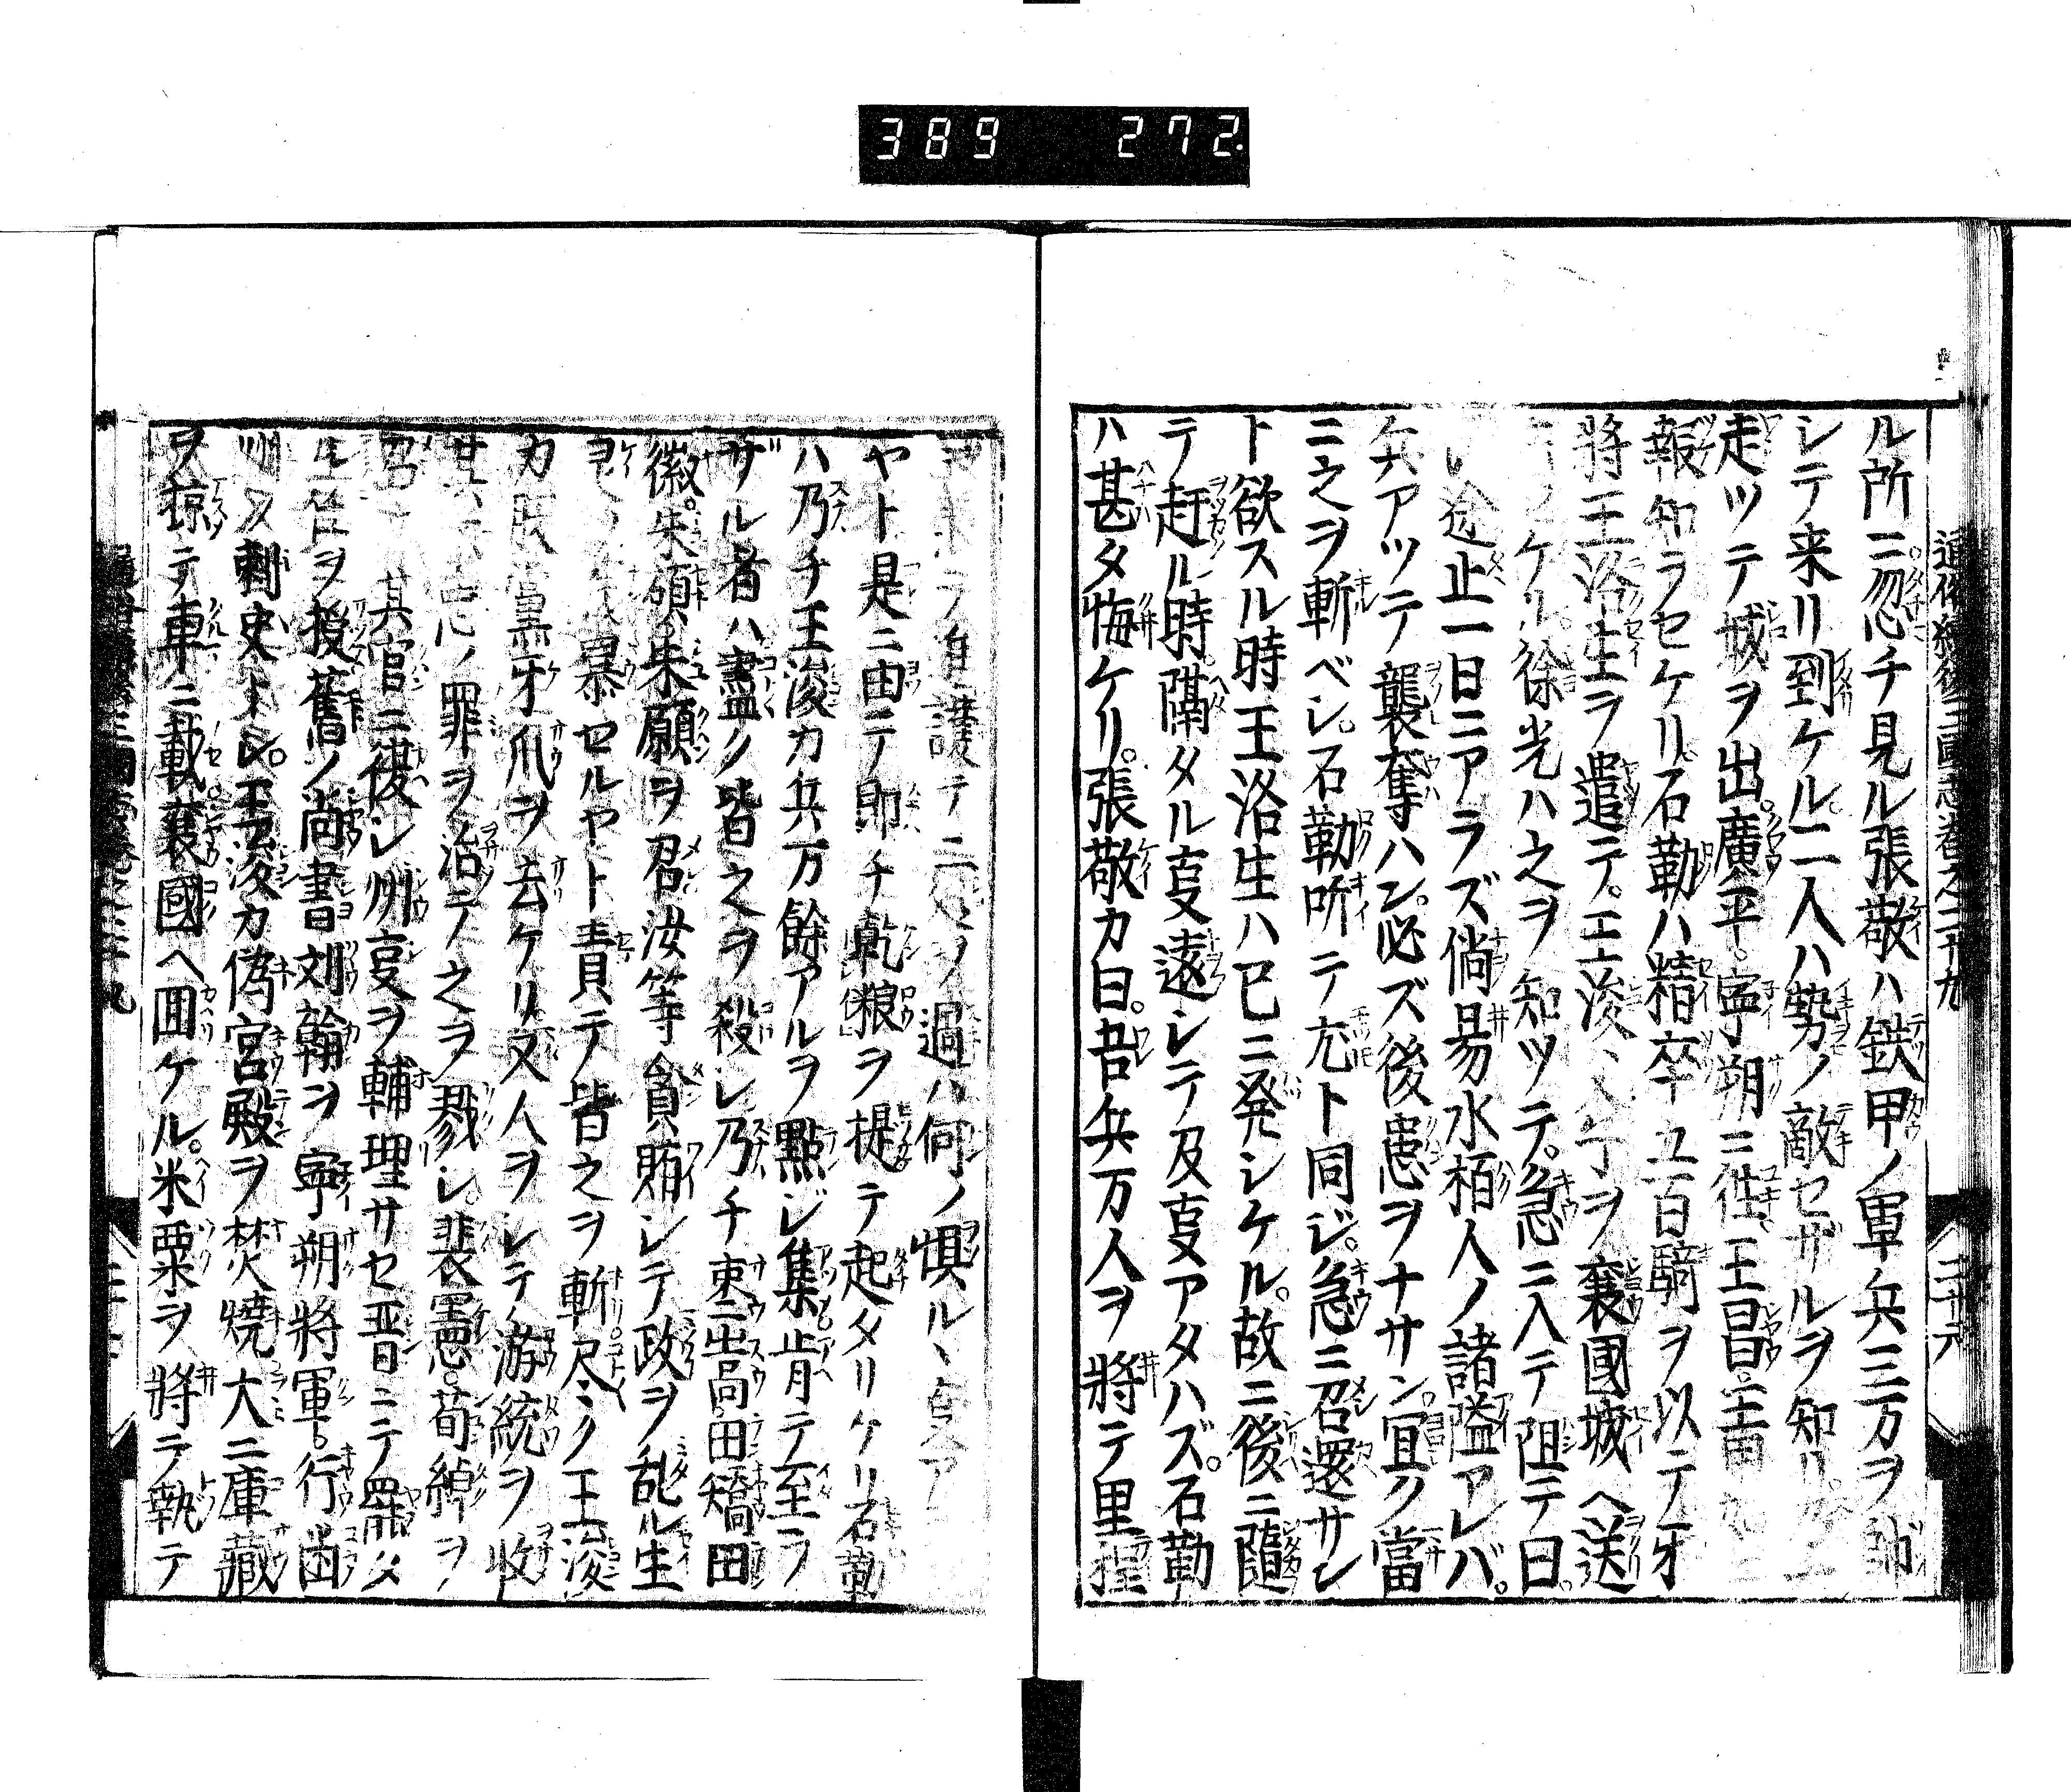 389 272.
通俗續後三國志卷之二十九
二十六
ル所ニ忽チ見ル張敬ハ鉄甲ノ軍兵三万ヲ
シテ来リ到ケル。二人ハ勢ノ敵セザルヲ知リ。
走ツテ城ヲ出。廣平。寧朔ニ徃。王昌。
報知ラセケリ。石勒ハ精卒五百騎ヲ以テ牙
將王洛生ヲ遣テ。王浚ヲ襄國城ヘ送
ケリ。徐光ハ之ヲ知ツテ。急ニ入テ阻テ曰。
途止一日ニアラズ倘昜水栢人ノ諸隘アレバ。
兵アツテ襲奪ハン。必ズ後患ヲナサン。宜ク當
ニ之ヲ斬ベシ。石勒听テ尤ト同ジ。急ニ召還サン
ト欲スル時王洛生ハ已ニ発シケル。故ニ後ニ隨
テ赶ル時。隔タル㕝遠シテ及㕝アタハズ。石勒
ハ甚タ悔ケリ。張敬カ曰。吾兵万人ヲ將テ里程
護テ過ハ何ノ惧ル
ヤト是ニ由テ即チ乾粮ヲ提テ起タリケリ石勒
ハ乃チ王浚カ兵万餘アルヲ點ジ集肯テ至ラ
ザル者ハ盡ク皆之ヲ殺シ乃チ棗嵩。田矯田
徽。朱碩。朱願ヲ召汝等貪賄シテ政ヲ乱ル生
暴セルヤト責テ皆之ヲ斬尽ミク王浚
カ牙爪ヲ去ケリ。又人ヲシテ游統ヲ收
其不忠ノ罪ヲ治テ之ヲ戮シ。裴憲。荀綽ヲ
其官ニ復シ州㕝ヲ輔理サセ晋ニテ罷タ
ル官ヲ授舊ノ尚書刘翰ヲ寧朔將軍。行幽
州ノ刺史トシ。王浚カ偽宮殿ヲ焚燒大ニ庫藏
ヲ掠テ車ニ載襄國ヘ囬ケル。米粟ヲ將テ執テ